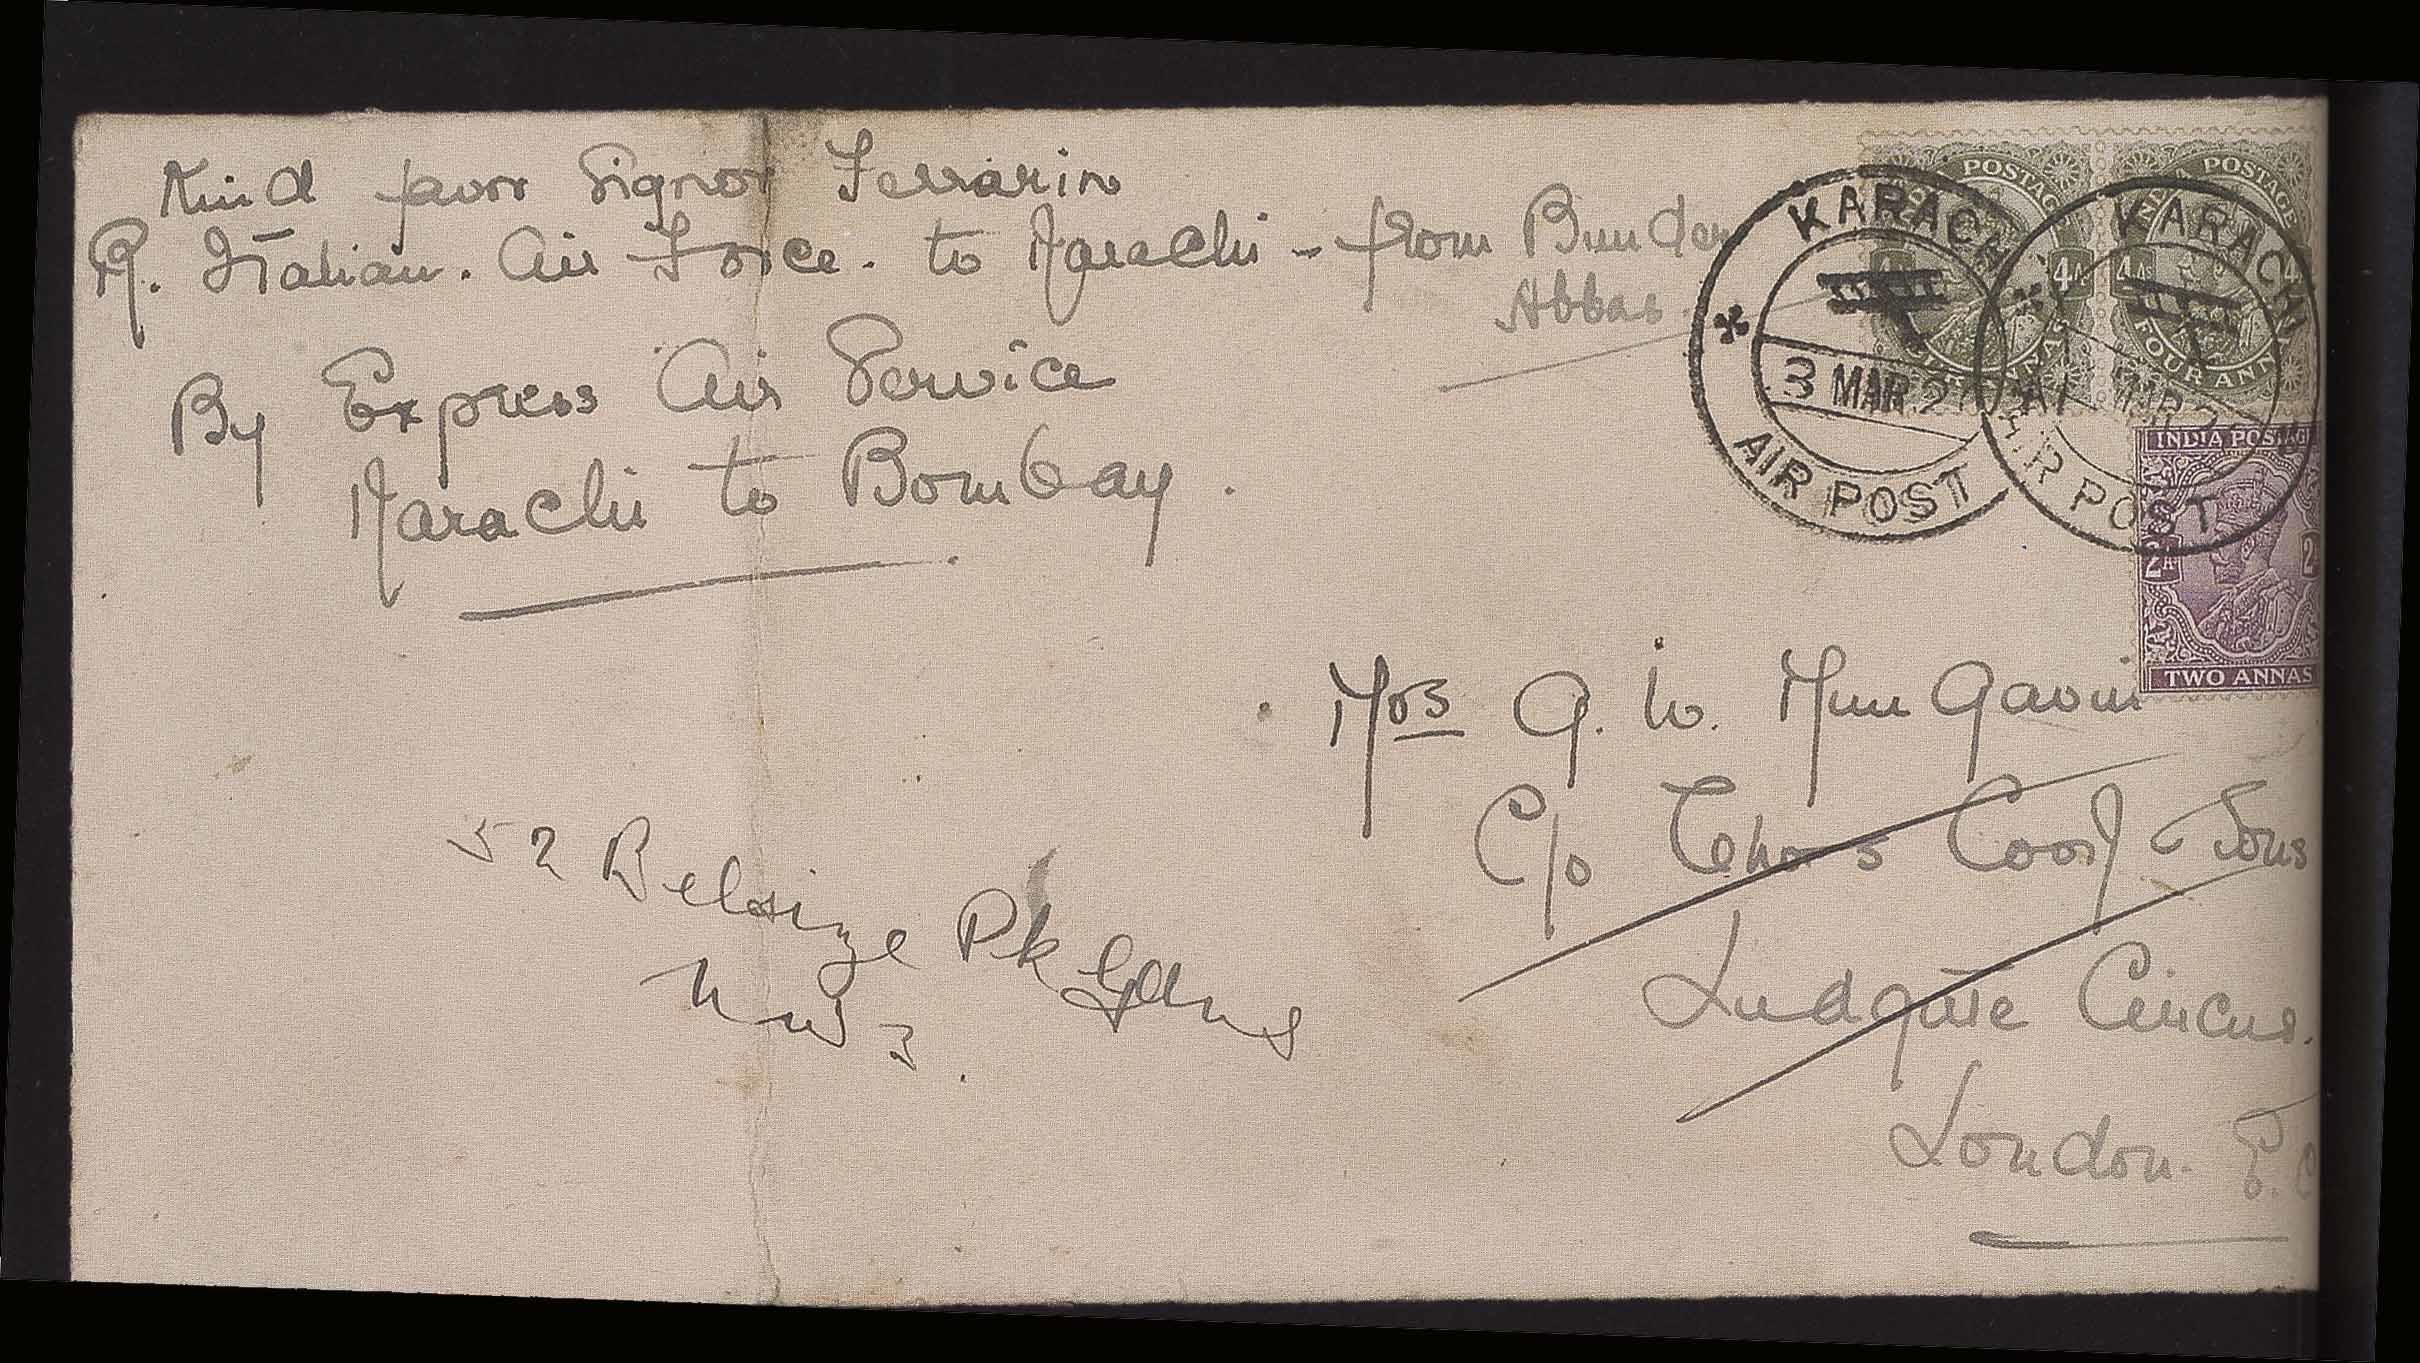 Kind favor Signor Ferrarin
R. Italian. Air Force. to Karachi - from Bunder
Abbas.
By Express Air Service
Karachi to Bombay.
KARACHI
3 MAR 2
AIR POST
KARACHI
MAR 2
AIR POST
POSTAGE
4A
INDIA POSTAGE
4As
FOUR ANN
INDIA POSTAG
2A
2
TWO ANNAS
Mrs G. W. MunGavin
C/o Thos Cook & Sons
Ludgate Circus.
London. E.C
52 Belsize Pk Gdns
NW3.